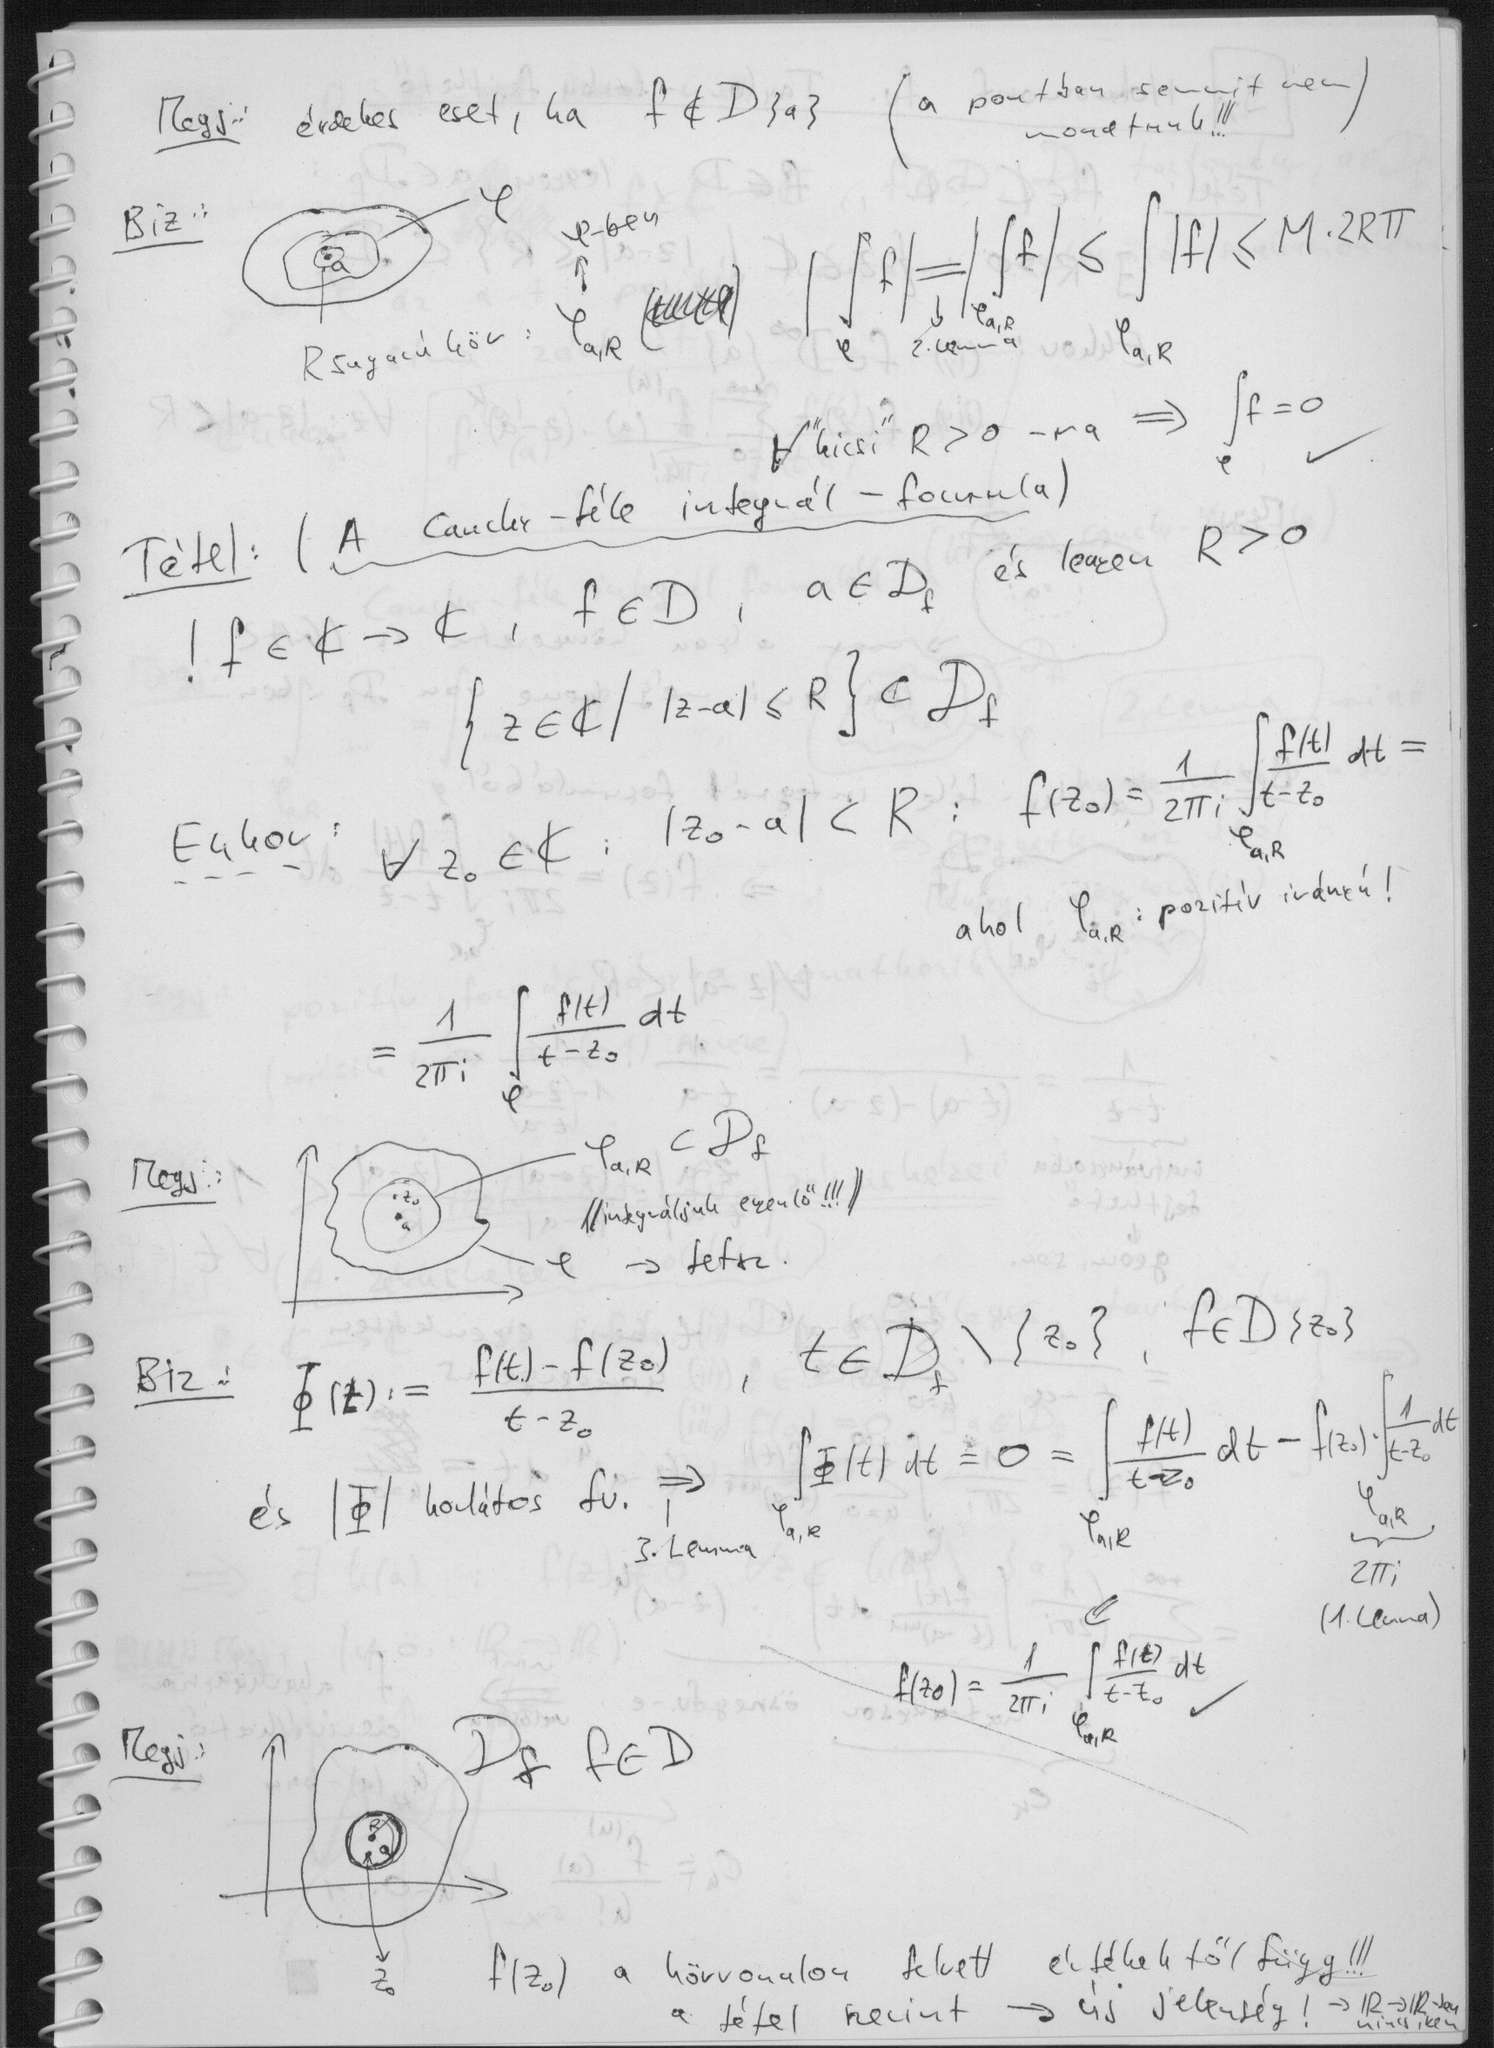 Megj.: érdekes eset, ha f ∉ D{a} (a pontban semmit nem mondtunk!!!)
Biz.:
φ
a
φ-ben
↑
R sugarú kör: φ_{a,R}
|∫_φ f| = |∫_{φ_{a,R}} f| ≤ ∫_{φ_{a,R}} |f| ≤ M·2Rπ
2. Lemma
∀ "kicsi" R > 0 -ra ⇒ ∫_φ f = 0 ✓
Tétel: (A Cauchy-féle integrál-formula)
! f ∈ ℂ → ℂ, f ∈ D, a ∈ D_f és legyen R > 0
{z ∈ ℂ / |z-a| ≤ R} ⊂ D_f
Ekkor: ∀ z₀ ∈ ℂ: |z₀-a| < R: f(z₀) = 1/(2πi) ∫_{φ_{a,R}} f(t)/(t-z₀) dt =
ahol φ_{a,R}: pozitív irányú!
= 1/(2πi) ∫_φ f(t)/(t-z₀) dt
Megj.:
z₀
a
φ_{a,R} ⊂ D_f
(integráljuk ezen is!!!)
φ → tetsz.
Biz.: Φ(t) := (f(t)-f(z₀))/(t-z₀), t ∈ D_f \ {z₀}, f ∈ D{z₀}
és |Φ| korlátos fv. ⇒ ∫_{φ_{a,R}} Φ(t) dt = 0 = ∫_{φ_{a,R}} f(t)/(t-z₀) dt - f(z₀)·∫_{φ_{a,R}} 1/(t-z₀) dt
3. Lemma
2πi
(1. Lemma)
⇙
f(z₀) = 1/(2πi) ∫_{φ_{a,R}} f(t)/(t-z₀) dt ✓
Megj.:
D_f f ∈ D
R
a
z₀
f(z₀) a körvonalon felvett értékektől függ!!!
a tétel szerint → új jelenség! → ℝ→ℝ-ben nincs ilyen